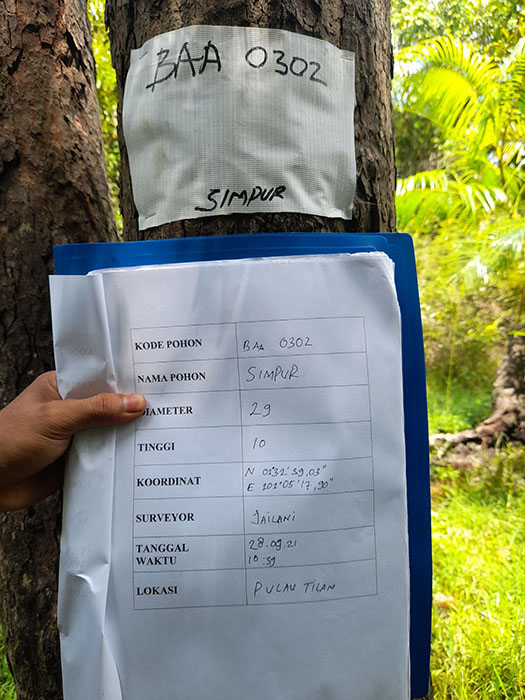 BAA 0302
SIMPUR
KODE POHON BAA 0302
NAMA POHON SIMPUR
DIAMETER 29
TINGGI 10
KOORDINAT N 01°32'39,03"
E 101°05'17,90"
SURVEYOR JAILANI
TANGGAL 28.09.21
WAKTU 10:39
LOKASI PULAU TILAN